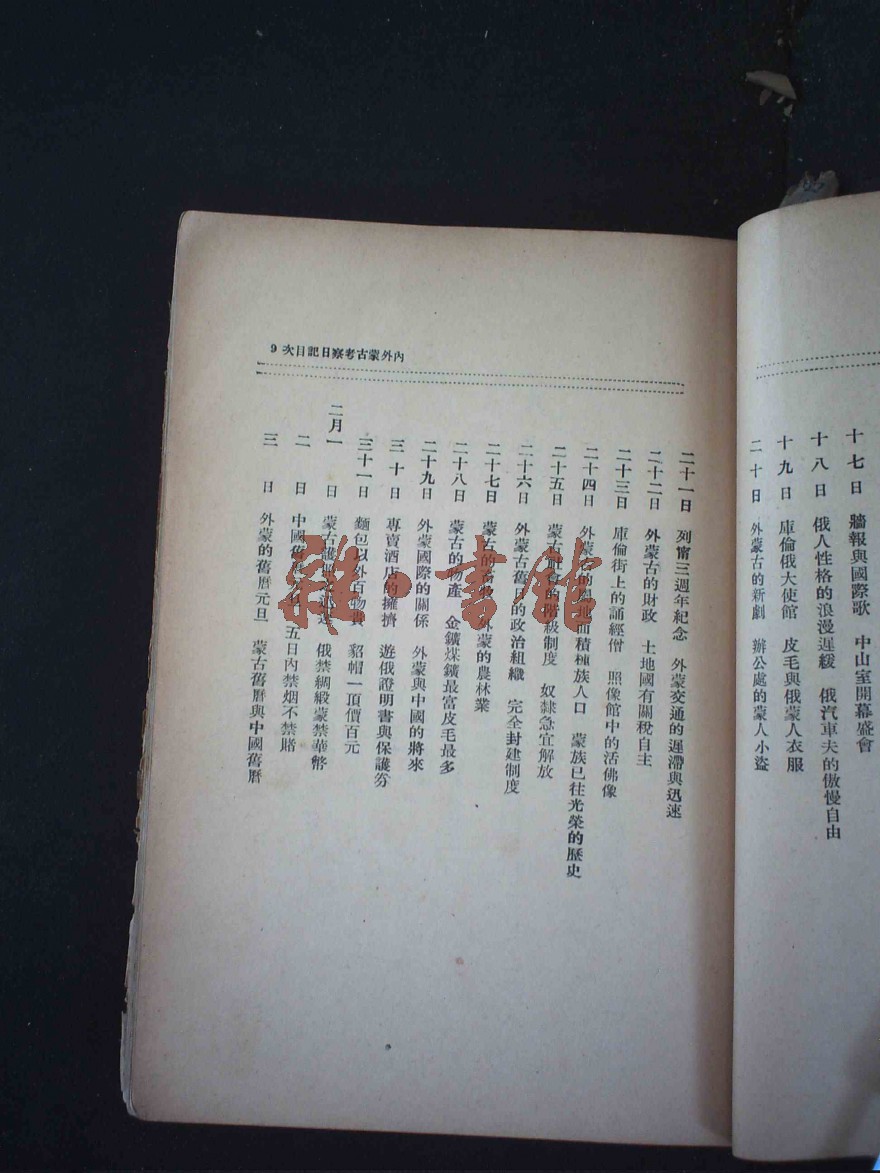 十七日 牆報與國際歌 中山室開幕盛會
十八日 俄人性格的浪漫遲緩 俄汽車夫的傲慢自由
十九日 庫倫俄大使館 皮毛與俄蒙人衣服
二十日 外蒙古的新劇 辦公處的蒙人小盜
9 次目記日察考古蒙外內
二十一日 列甯三週年紀念 外蒙交通的遲滯與迅速
二十二日 外蒙古的財政 土地國有關稅自主
二十三日 庫倫街上的誦經僧 照像館中的活佛像
二十四日 外蒙古的 地面積種族人口 蒙族已往光榮的歷史
二十五日 蒙古社會的階級制度 奴隸急宜解放
二十六日 外蒙古舊 的政治組織 完全封建制度
二十七日 蒙古的畜牧 外蒙的農林業
二十八日 蒙古的物產 金鑛煤鑛最富皮毛最多
二十九日 外蒙國際的關係 外蒙與中國的將來
三十日 專賣酒店的擁擠 遊俄證明書與保護券
三十一日 麵包以外百物貴 貂帽一頂價百元
二月一日 蒙古護照 俄禁綢緞蒙禁華幣
二日 中國舊曆 五日內禁烟不禁賭
三日 外蒙的舊曆元旦 蒙古舊曆與中國舊曆
雜 書館